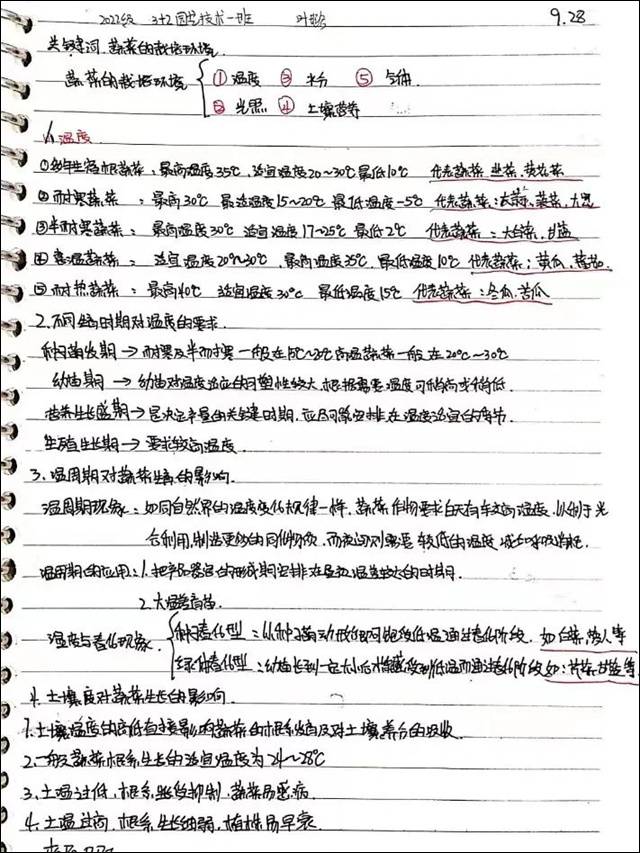 2022级 3+2园艺技术一班 9.28
关键词:蔬菜的栽培环境
蔬菜的栽培环境 ①温度 ③水分 ⑤气体
②光照 ④土壤营养
1、温度
①多年生宿根蔬菜:最高温度35℃ 适宜温度20~30℃ 最低10℃ 代表蔬菜:韭菜、黄花菜
②耐寒蔬菜:最高30℃ 最适温度15~20℃ 最低温度-5℃ 代表蔬菜:大蒜、菠菜、大葱
③半耐寒蔬菜:最高温度30℃ 适宜温度17~25℃ 最低2℃ 代表蔬菜:大白菜、甘蓝
④喜温蔬菜:适宜温度20℃~30℃、最高温度35℃、最低温度10℃ 代表蔬菜:黄瓜、番茄
⑤耐热蔬菜:最高40℃ 适宜温度30℃ 最低温度15℃ 代表蔬菜:冬瓜、苦瓜
2.不同生育时期对温度的要求.
种子萌发期→耐寒及半耐寒一般在15℃~20℃ 喜温蔬菜一般在20℃~30℃
幼苗期→幼苗对温度适应的可塑性较大,根据需要温度可稍高或稍低.
营养生长盛期→是决定产量的关键时期,应尽可能安排在温度适宜的季节.
生殖生长期→要求较高温度.
3.温周期对蔬菜生长的影响.
温周期现象:如同自然界的温度变化规律一样,蔬菜作物要求白天有较高温度,以利于光
合利用,制造更多的同化物质,而夜间则需要较低的温度 减少呼吸消耗.
温周期的应用:1.把产品器官的形成期安排在昼夜温差较大的时期.
2.大温差育苗.
温度与春化现象 种子春化型:从种子萌动开始即可能经低温通过春化阶段.如白菜、萝卜等
绿体春化型:幼苗长到一定大小后才能感受到低温而通过春化阶段 如:芹菜、甘蓝等
4.土壤温度对蔬菜生长的影响.
1.土壤温度的高低直接影响蔬菜的根系发育及对土壤养分的吸收.
2.一般蔬菜根系生长的适宜温度为24~28℃
3.土温过低,根系生长受抑制,蔬菜易感病.
4.土温过高,根系生长细弱,植株易早衰.